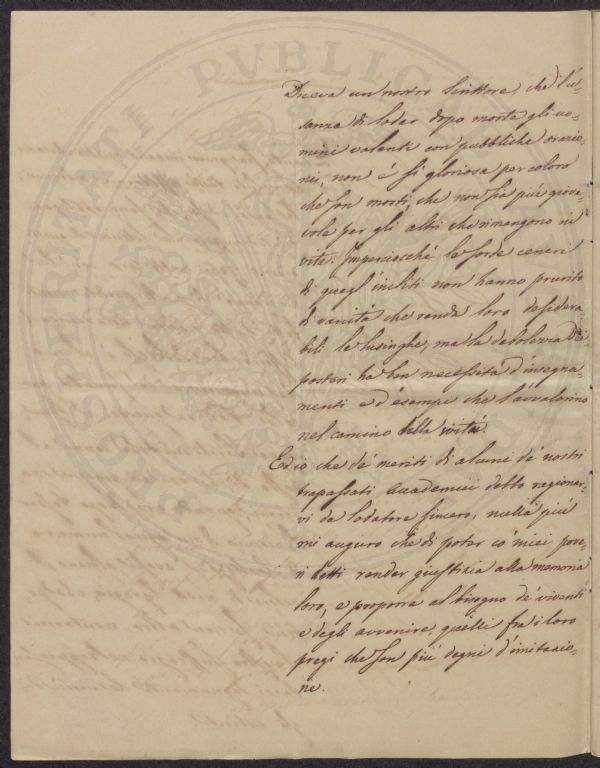 Diceva un nostro Scrittore, che l'u-
sanza di lodar dopo morte gli uo-
mini valenti con pubbliche orazio-
ni, non è sì gloriosa per coloro
che son morti, che non sia più giove-
vole per gli altri che rimangono in
vita. Imperciocchè le sorde ceneri
di quegl'incliti non hanno prurito
di vanità che renda loro desidera-
bili le lusinghe, ma la debolezza dei
posteri ha ben necessità d'insegna-
menti e d'esempi che l'avvalorino
nel camino della virtù.
Ed io che de' meriti di alcuni de' nostri
trapassati Accademici debbo ragionar-
vi da lodatore sincero, nulla più
mi auguro che di poter co' miei pove-
ri detti render giustizia alla memoria
loro, e proporre al bisogno de' viventi
e degli avvenire quelli fra i loro
pregi che son più degni d'imitazio-
ne.
PUBLICA
PROSPERITATI